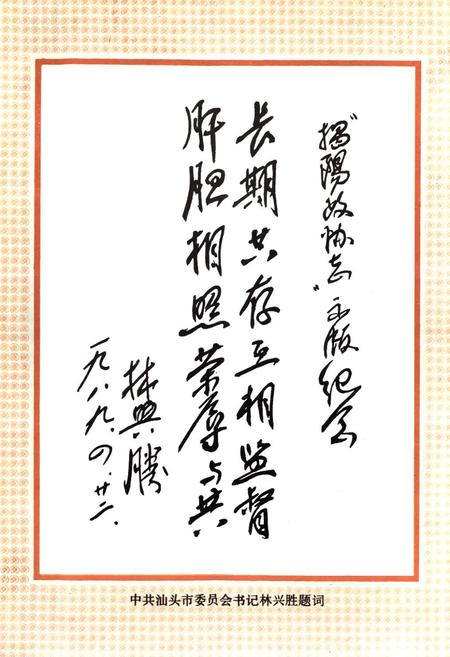 “揭陽政协志”出版纪念
长期共存互相监督
肝胆相照荣辱与共
林興勝
一九八九.四.廿二.
中共汕头市委员会书记林兴胜题词